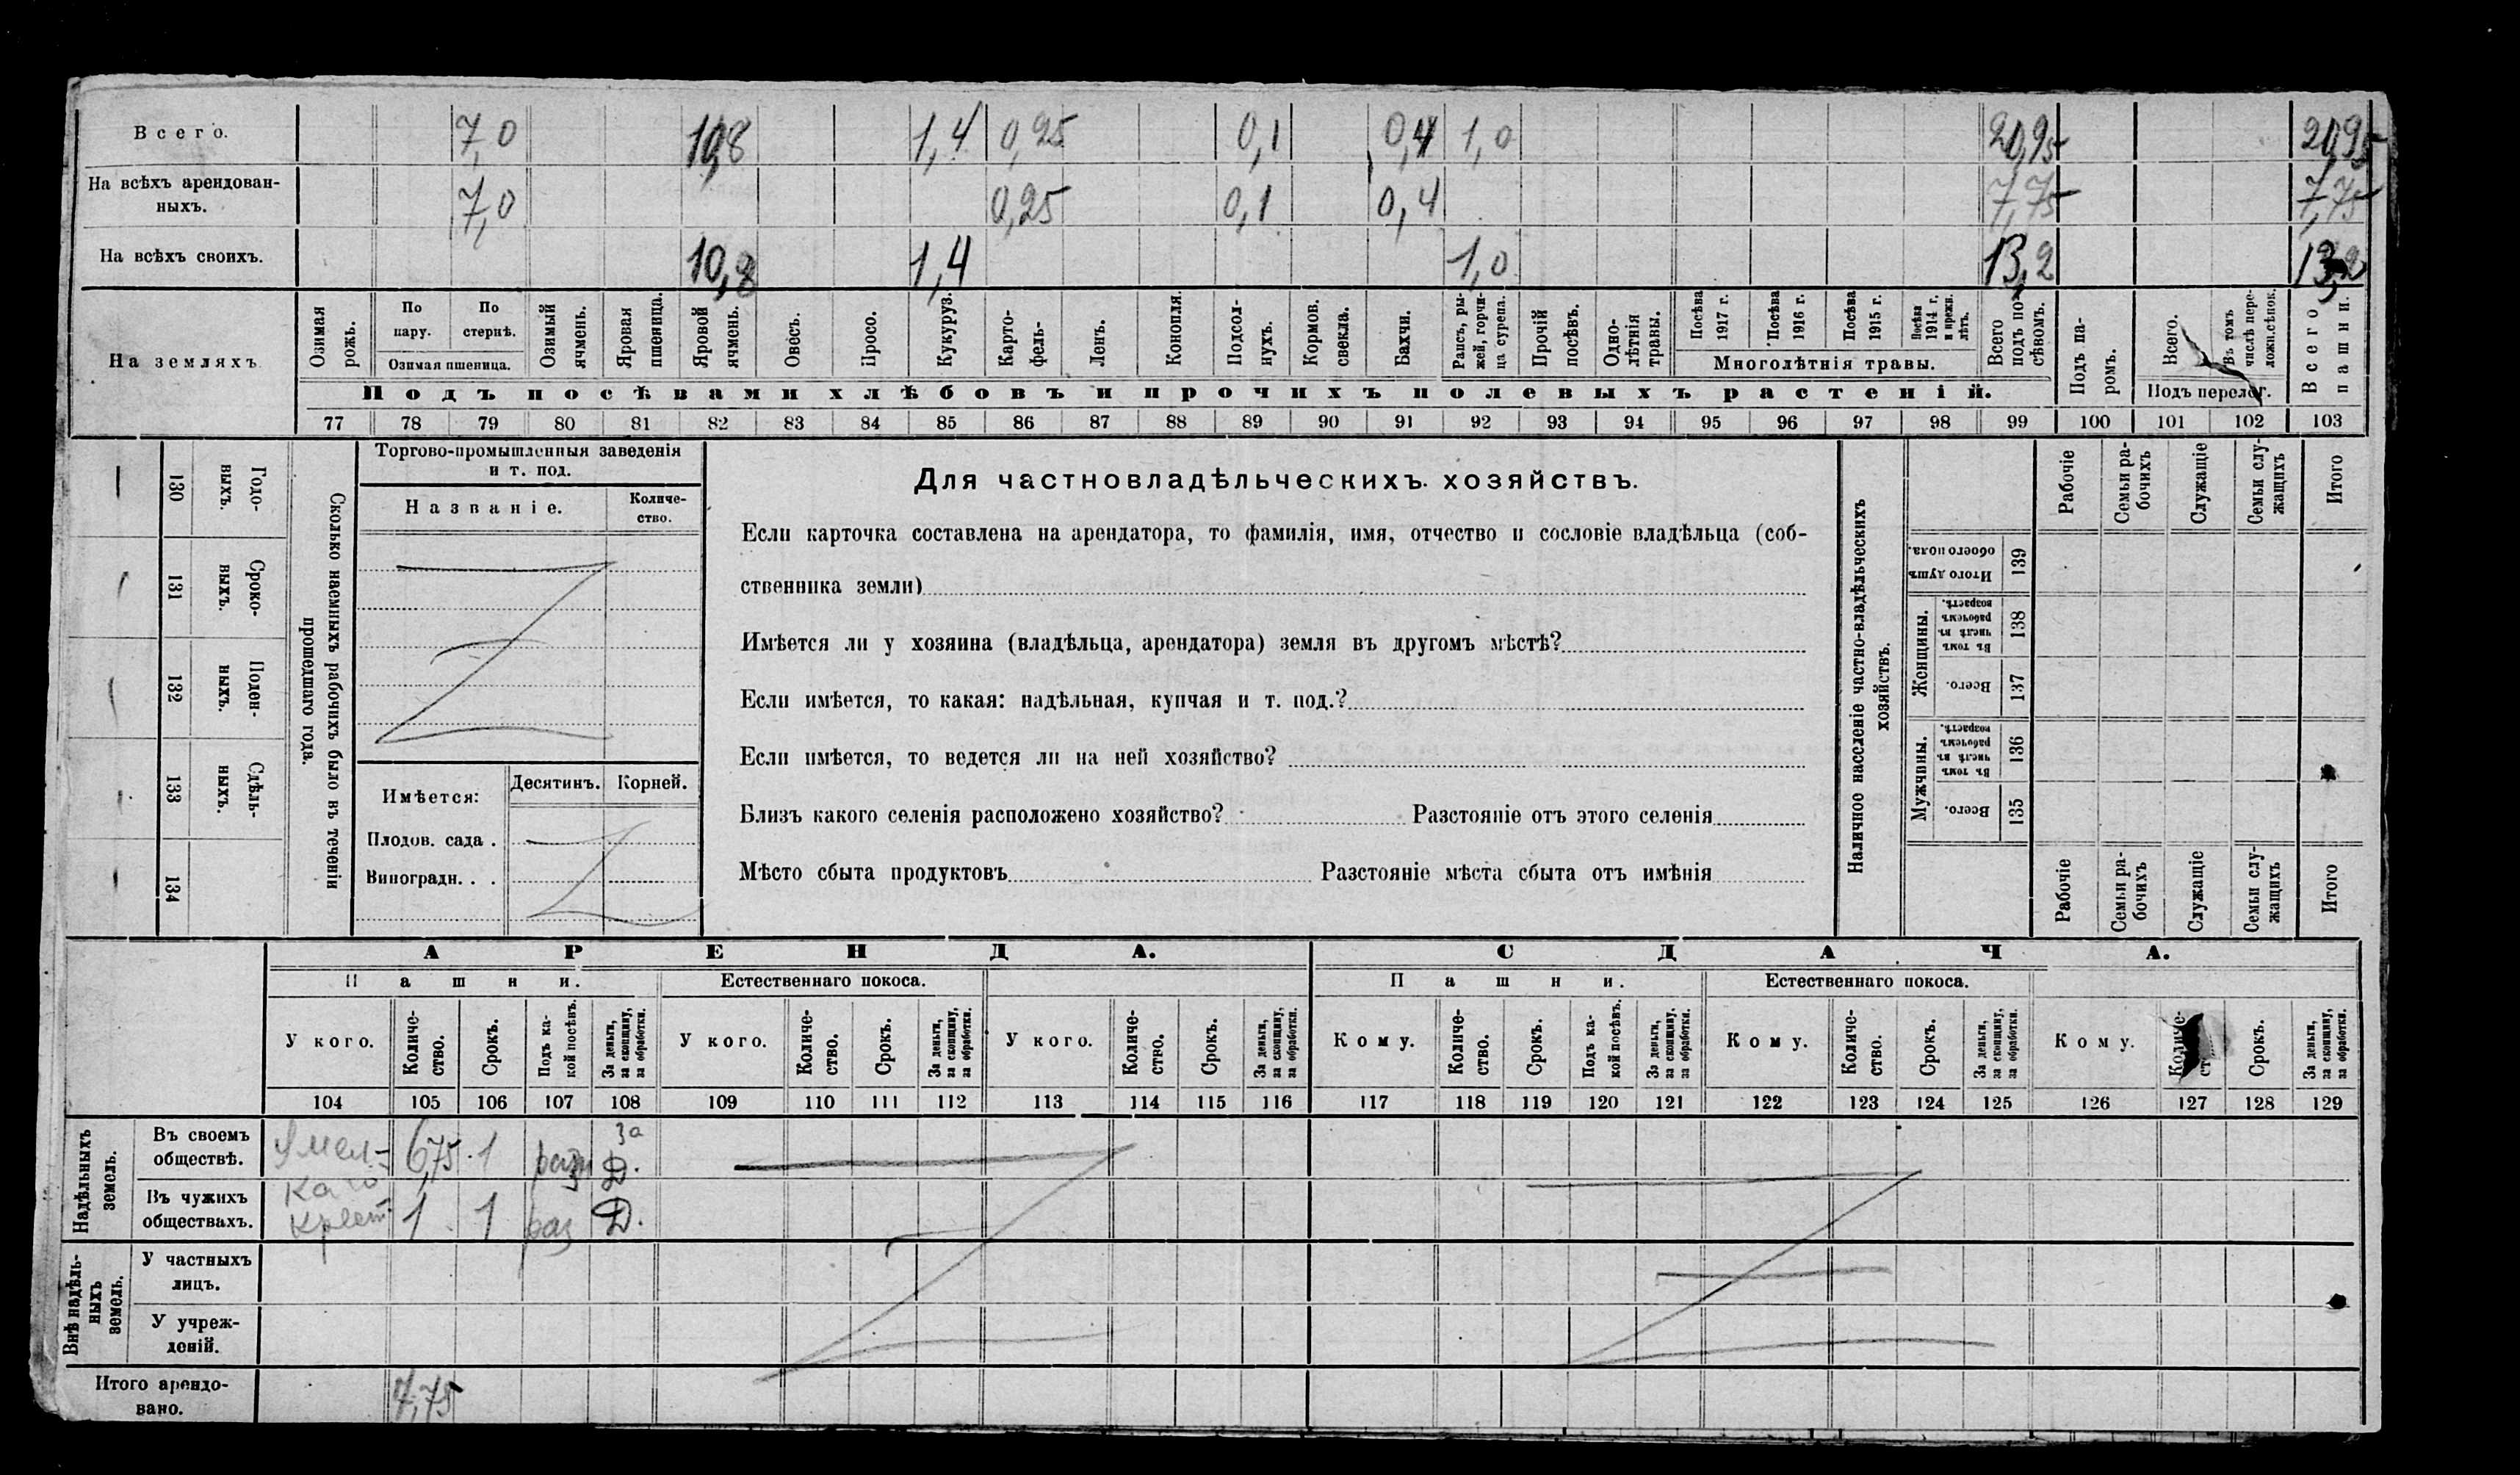 Всего. 7,0 10,8 1,4 0,25 0,1 0,4 1,0 20,95 20,95
На всѣхъ арендован-
ныхъ. 7,0 0,25 0,1 0,4 7,75 7,75
На всѣхъ своихъ. 10,8 1,4 1,0 13,2 13,2
На земляхъ
Озимая рожь.
По пару.
По стернѣ.
Озимая пшеница.
Озимый ячмень.
Яровая пшеница.
Яровой ячмень.
Овесъ.
Просо.
Кукуруз.
Карто-
фель-
Ленъ.
Конопля.
Подсол-
нухъ.
Кормов.
свекла.
Бахчи.
Рапсъ, ры-
жей, горчи-
ца сурепа.
Прочій
посѣвъ.
Одно-
лѣтнія
травы.
Посѣва
1917 г.
Посѣва
1916 г.
Посѣва
1915 г.
Посѣва
1914 г.
и прежн.
лѣтъ.
Многолѣтнія травы.
Всего
подъ по-
сѣвомъ.
Подъ па-
ромъ.
Всего.
Въ томъ
числѣ пере-
ложн.сѣнок.
Подъ перелог.
Всего
пашни.
Подъ посѣвами хлѣбовъ и прочихъ полевыхъ растеній.
77 78 79 80 81 82 83 84 85 86 87 88 89 90 91 92 93 94 95 96 97 98 99 100 101 102 103
130 Годо-
выхъ.
131 Сроко-
выхъ.
132 Поден-
ныхъ.
133 Сдѣль-
ныхъ.
134
Сколько наемныхъ рабочихъ было въ теченіи
прошедшаго года.
Торгово-промышленныя заведенія
и т. под.
Названіе.
Количе-
ство.
Имѣется: Десятинъ. Корней.
Плодов. сада .
Виноградн. . .
Для частновладѣльческихъ хозяйствъ.
Если карточка составлена на арендатора, то фамилія, имя, отчество и сословіе владѣльца (соб-
ственника земли)
Имѣется ли у хозяина (владѣльца, арендатора) земля въ другомъ мѣстѣ?
Если имѣется, то какая: надѣльная, купчая и т. под.?
Если имѣется, то ведется ли на ней хозяйство?
Близъ какого селенія расположено хозяйство? Разстояніе отъ этого селенія
Мѣсто сбыта продуктовъ Разстояніе мѣста сбыта отъ имѣнія
Наличное населеніе частно-владѣльческихъ
хозяйствъ.
Рабочіе
Семьи ра-
бочихъ
Служащіе
Семьи слу-
жащихъ
Итого
Итого душъ
обоего пола.
139
Женщины.
Въ томъ
числѣ въ
рабочемъ
возрастѣ.
138
Всего.
137
Мужчины.
Въ томъ
числѣ въ
рабочемъ
возрастѣ.
136
Всего.
135
Рабочіе
Семьи ра-
бочихъ
Служащіе
Семьи слу-
жащихъ
Итого
АРЕНДА. СДАЧА.
Пашни. Естественнаго покоса. Пашни. Естественнаго покоса.
У кого.
Количе-
ство.
Срокъ.
Подъ ка-
кой посѣвъ.
За деньги,
за скопщину,
за обработки.
У кого.
Количе-
ство.
Срокъ.
За деньги,
за скопщину,
за обработки.
У кого.
Количе-
ство.
Срокъ.
За деньги,
за скопщину,
за обработки.
Кому.
Количе-
ство.
Срокъ.
Подъ ка-
кой посѣвъ.
За деньги,
за скопщину,
за обработки.
Кому.
Количе-
ство.
Срокъ.
За деньги,
за скопщину,
за обработки.
Кому.
Количе-
ст
Срокъ.
За деньги,
за скопщину,
за обработки.
104 105 106 107 108 109 110 111 112 113 114 115 116 117 118 119 120 121 122 123 124 125 126 127 128 129
Надѣльныхъ
земель.
Въ своемъ
обществѣ. 6,75 1 За Д.
Въ чужихъ
обществахъ. крест 1 1 раз Д.
Внѣ надѣль-
ныхъ
земель.
У частныхъ
лицъ.
У учреж-
деній.
Итого арендо-
вано. 7,75